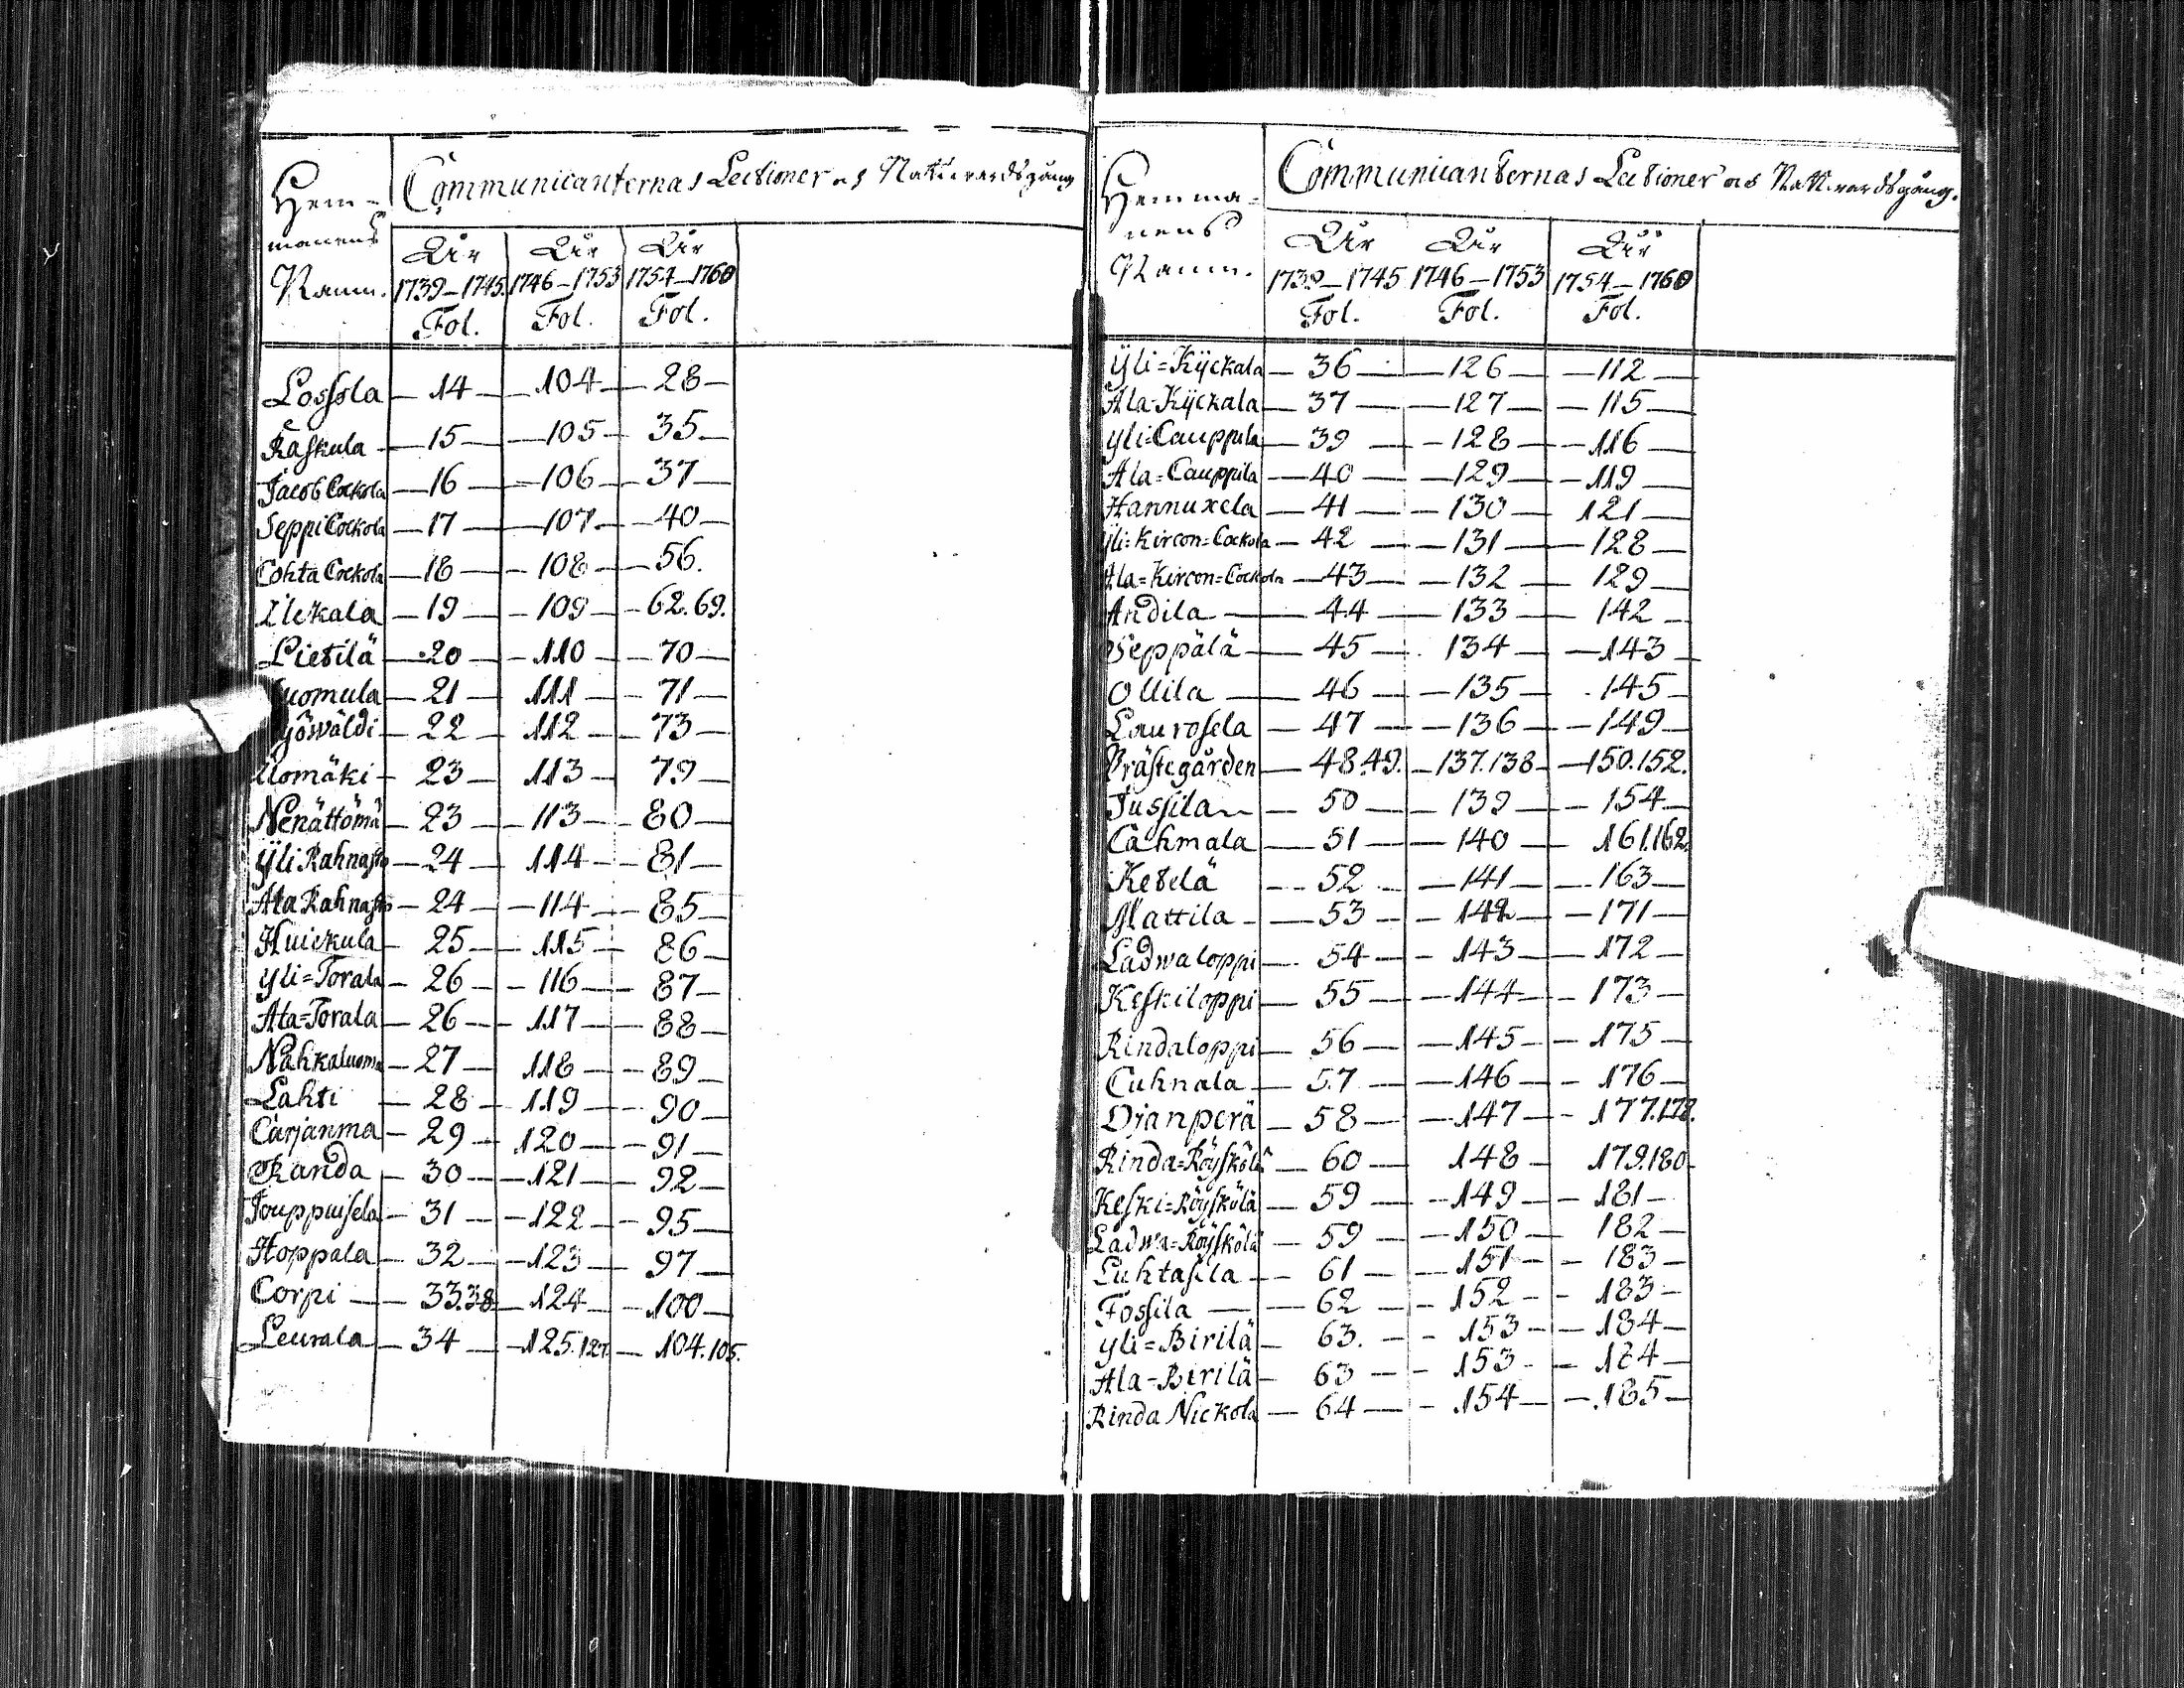 Hem-
manens
Namn.
Communicanternas Lectioner och Nattvardsgång
Åhr Åhr Åhr
1739-1745. 1746-1753 1754-1760
Fol. Fol. Fol.
Lossola - 14 - 104 - 28 -
Raskula - 15 - 105 - 35 -
Jacob Cockola - 16 - 106 - 37 -
Seppi Cockola - 17 - 107 - 40 -
Cohta Cockola - 18 - 108 - 56.
Ilckala - 19 - 109 - 62. 69.
Lietilä - 20 - 110 - 70 -
uomula - 21 - 111 - 71 -
yöwäldi - 22 - 112 - 73 -
Uomäki - 23 - 113 - 79 -
Nenättömä - 23 - 113 - 80 -
Yli Rahnasto - 24 - 114 - 81 -
Ala Rahnasto - 24 - 114 - 85 -
Huickula - 25 - 115 - 86 -
Yli=Torala - 26 - 116 - 87 -
Ala=Torala - 26 - 117 - 88 -
Nahkaluoma - 27 - 118 - 89 -
Lahti - 28 - 119 - 90 -
Carjanma - 29 - 120 - 91 -
Randa - 30 - 121 - 92 -
Jouppuisela - 31 - 122 - 95 -
Hoppala - 32 - 123 - 97 -
Corpi - 33.38 - 124 - 100 -
Leurala - 34 - 125.127 - 104.105.
Hemma-
nens
Namn.
Communicanternas Lectioner och Nattvardsgång.
Åhr Åhr Åhr
1739-1745 1746-1753 1754-1760
Fol. Fol. Fol.
Yli=Kyckala - 36 - 126 - 112 -
Ala=Kyckala - 37 - 127 - 115 -
Yli=Cauppila - 39 - 128 - 116 -
Ala=Cauppila - 40 - 129 - 119 -
Hannuxela - 41 - 130 - 121 -
Yli=Kircon=Cockola - 42 - 131 - 128 -
Ala=Kircon=Cockola - 43 - 132 - 129 -
Andila - 44 - 133 - 142 -
Seppälä - 45 - 134 - 143 -
Ollila - 46 - 135 - 145 -
Laurosela - 47 - 136 - 149 -
Prästegården - 48.49. - 137.138 - 150.152.
Jussila - 50 - 139 - 154 -
Cahmala - 51 - 140 - 161.162.
Ketelä - 52 - 141 - 163 -
Mattila - 53 - 142 - 171 -
Ladwaloppi - 54 - 143 - 172 -
Keskiloppi - 55 - 144 - 173 -
Rindaloppi - 56 - 145 - 175 -
Cuhnala - 57 - 146 - 176 -
Ojanperä - 58 - 147 - 177.178.
Rinda=Röyskölä - 60 - 148 - 179.180 -
Keski=Röyskölä - 59 - 149 - 181 -
Ladwa=Röyskölä - 59 - 150 - 182 -
Luhtasela - 61 - 151 - 183 -
Fossila - 62 - 152 - 183 -
Yli=Birilä - 63. - 153 - 184 -
Ala=Birilä - 63 - 153 - 184 -
Rinda Nickola - 64 - 154 - 185 -